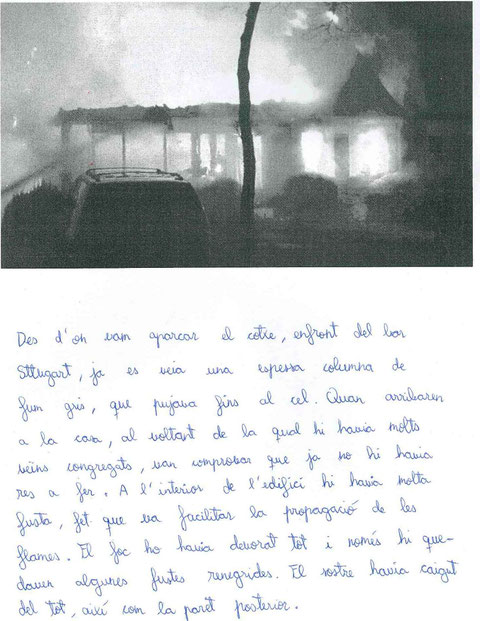 Des d'on vam aparcar el cotxe, enfront del bar
Sttugart, ja es veia una espessa columna de
fum gris, que pujava fins al cel. Quan arribaren
a la casa, al voltant de la qual hi havia molts
veïns congregats, van comprobar que ja no hi havia
res a fer. A l'interior de l'edifici hi havia molta
fusta, fet que va facilitar la propagació de les
flames. El foc ho havia devorat tot i només hi que-
daven algunes fustes renegrides. El sostre havia caigut
del tot, així com la paret posterior.